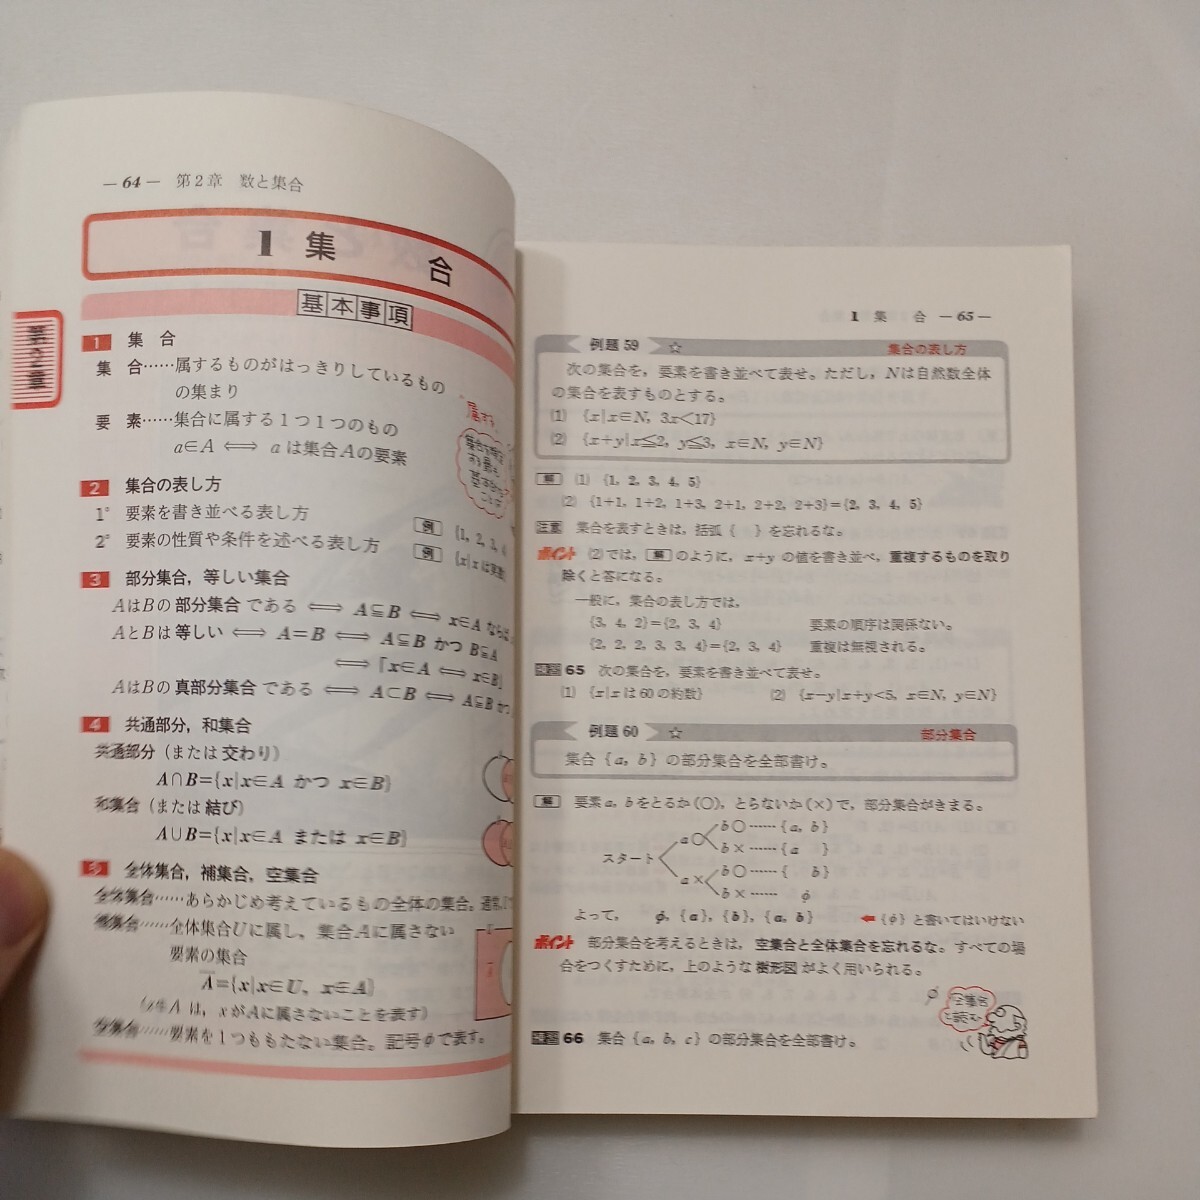 — 64 — 第2章 数と集合
1 集合
基本事項
1 集合
集 合……属するものがはっきりしているもの
の集まり
要 素……集合に属する1つ1つのもの
a∈A ⟺ a は集合Aの要素
"属する"
2 集合の表し方
1° 要素を書き並べる表し方 例 {1, 2, 3, 4
2° 要素の性質や条件を述べる表し方 例 {x|x は実数
3 部分集合，等しい集合
AはBの 部分集合 である ⟺ A⊆B ⟺ x∈A ならば
AとBは 等しい ⟺ A=B ⟺ A⊆B かつ B⊆A
⟺「x∈A ⟺ x∈B」
AはBの 真部分集合 である ⟺ A⊂B ⟺ A⊆B かつ
4 共通部分，和集合
共通部分（または 交わり）
A∩B={x|x∈A かつ x∈B}
和集合（または 結び）
A∪B={x|x∈A または x∈B}
5 全体集合，補集合，空集合
全体集合……あらかじめ考えているもの全体の集合。通常，U
補集合……全体集合Uに属し，集合Aに属さない
要素の集合
A̅={x|x∈U, x∉A}
(x∉A は，xがAに属さないことを表す)
空集合……要素を1つももたない集合。記号φで表す。
第2章
1 集 合 — 65 —
例題 59 ☆ 集合の表し方
次の集合を，要素を書き並べて表せ。ただし，Nは自然数全体
の集合を表すものとする。
(1) {x|x∈N, 3x<17}
(2) {x+y|x≦2, y≦3, x∈N, y∈N}
解 (1) {1, 2, 3, 4, 5}
(2) {1+1, 1+2, 1+3, 2+1, 2+2, 2+3}={2, 3, 4, 5}
注意 集合を表すときは，括弧{ }を忘れるな。
ポイント (2)では，解 のように，x+y の値を書き並べ，重複するものを取り
除くと答になる。
一般に，集合の表し方では，
{3, 4, 2}={2, 3, 4} 要素の順序は関係ない。
{2, 2, 2, 3, 3, 4}={2, 3, 4} 重複は無視される。
練習 65 次の集合を，要素を書き並べて表せ。
(1) {x|x は60の約数} (2) {x−y|x+y<5, x∈N, y∈N}
例題 60 ☆ 部分集合
集合{a, b}の部分集合を全部書け。
解 要素a, bをとるか(○)，とらないか(×)で，部分集合がきまる。
b○……{a, b}
a○
b×……{a }
スタート
b○……{ b}
a×
b×…… φ
よって， φ, {a}, {b}, {a, b} ←{φ}と書いてはいけない
ポイント 部分集合を考えるときは，空集合と全体集合を忘れるな。すべての場
合をつくすために，上のような 樹形図 がよく用いられる。
φ
空集合
と読む
練習 66 集合{a, b, c}の部分集合を全部書け。